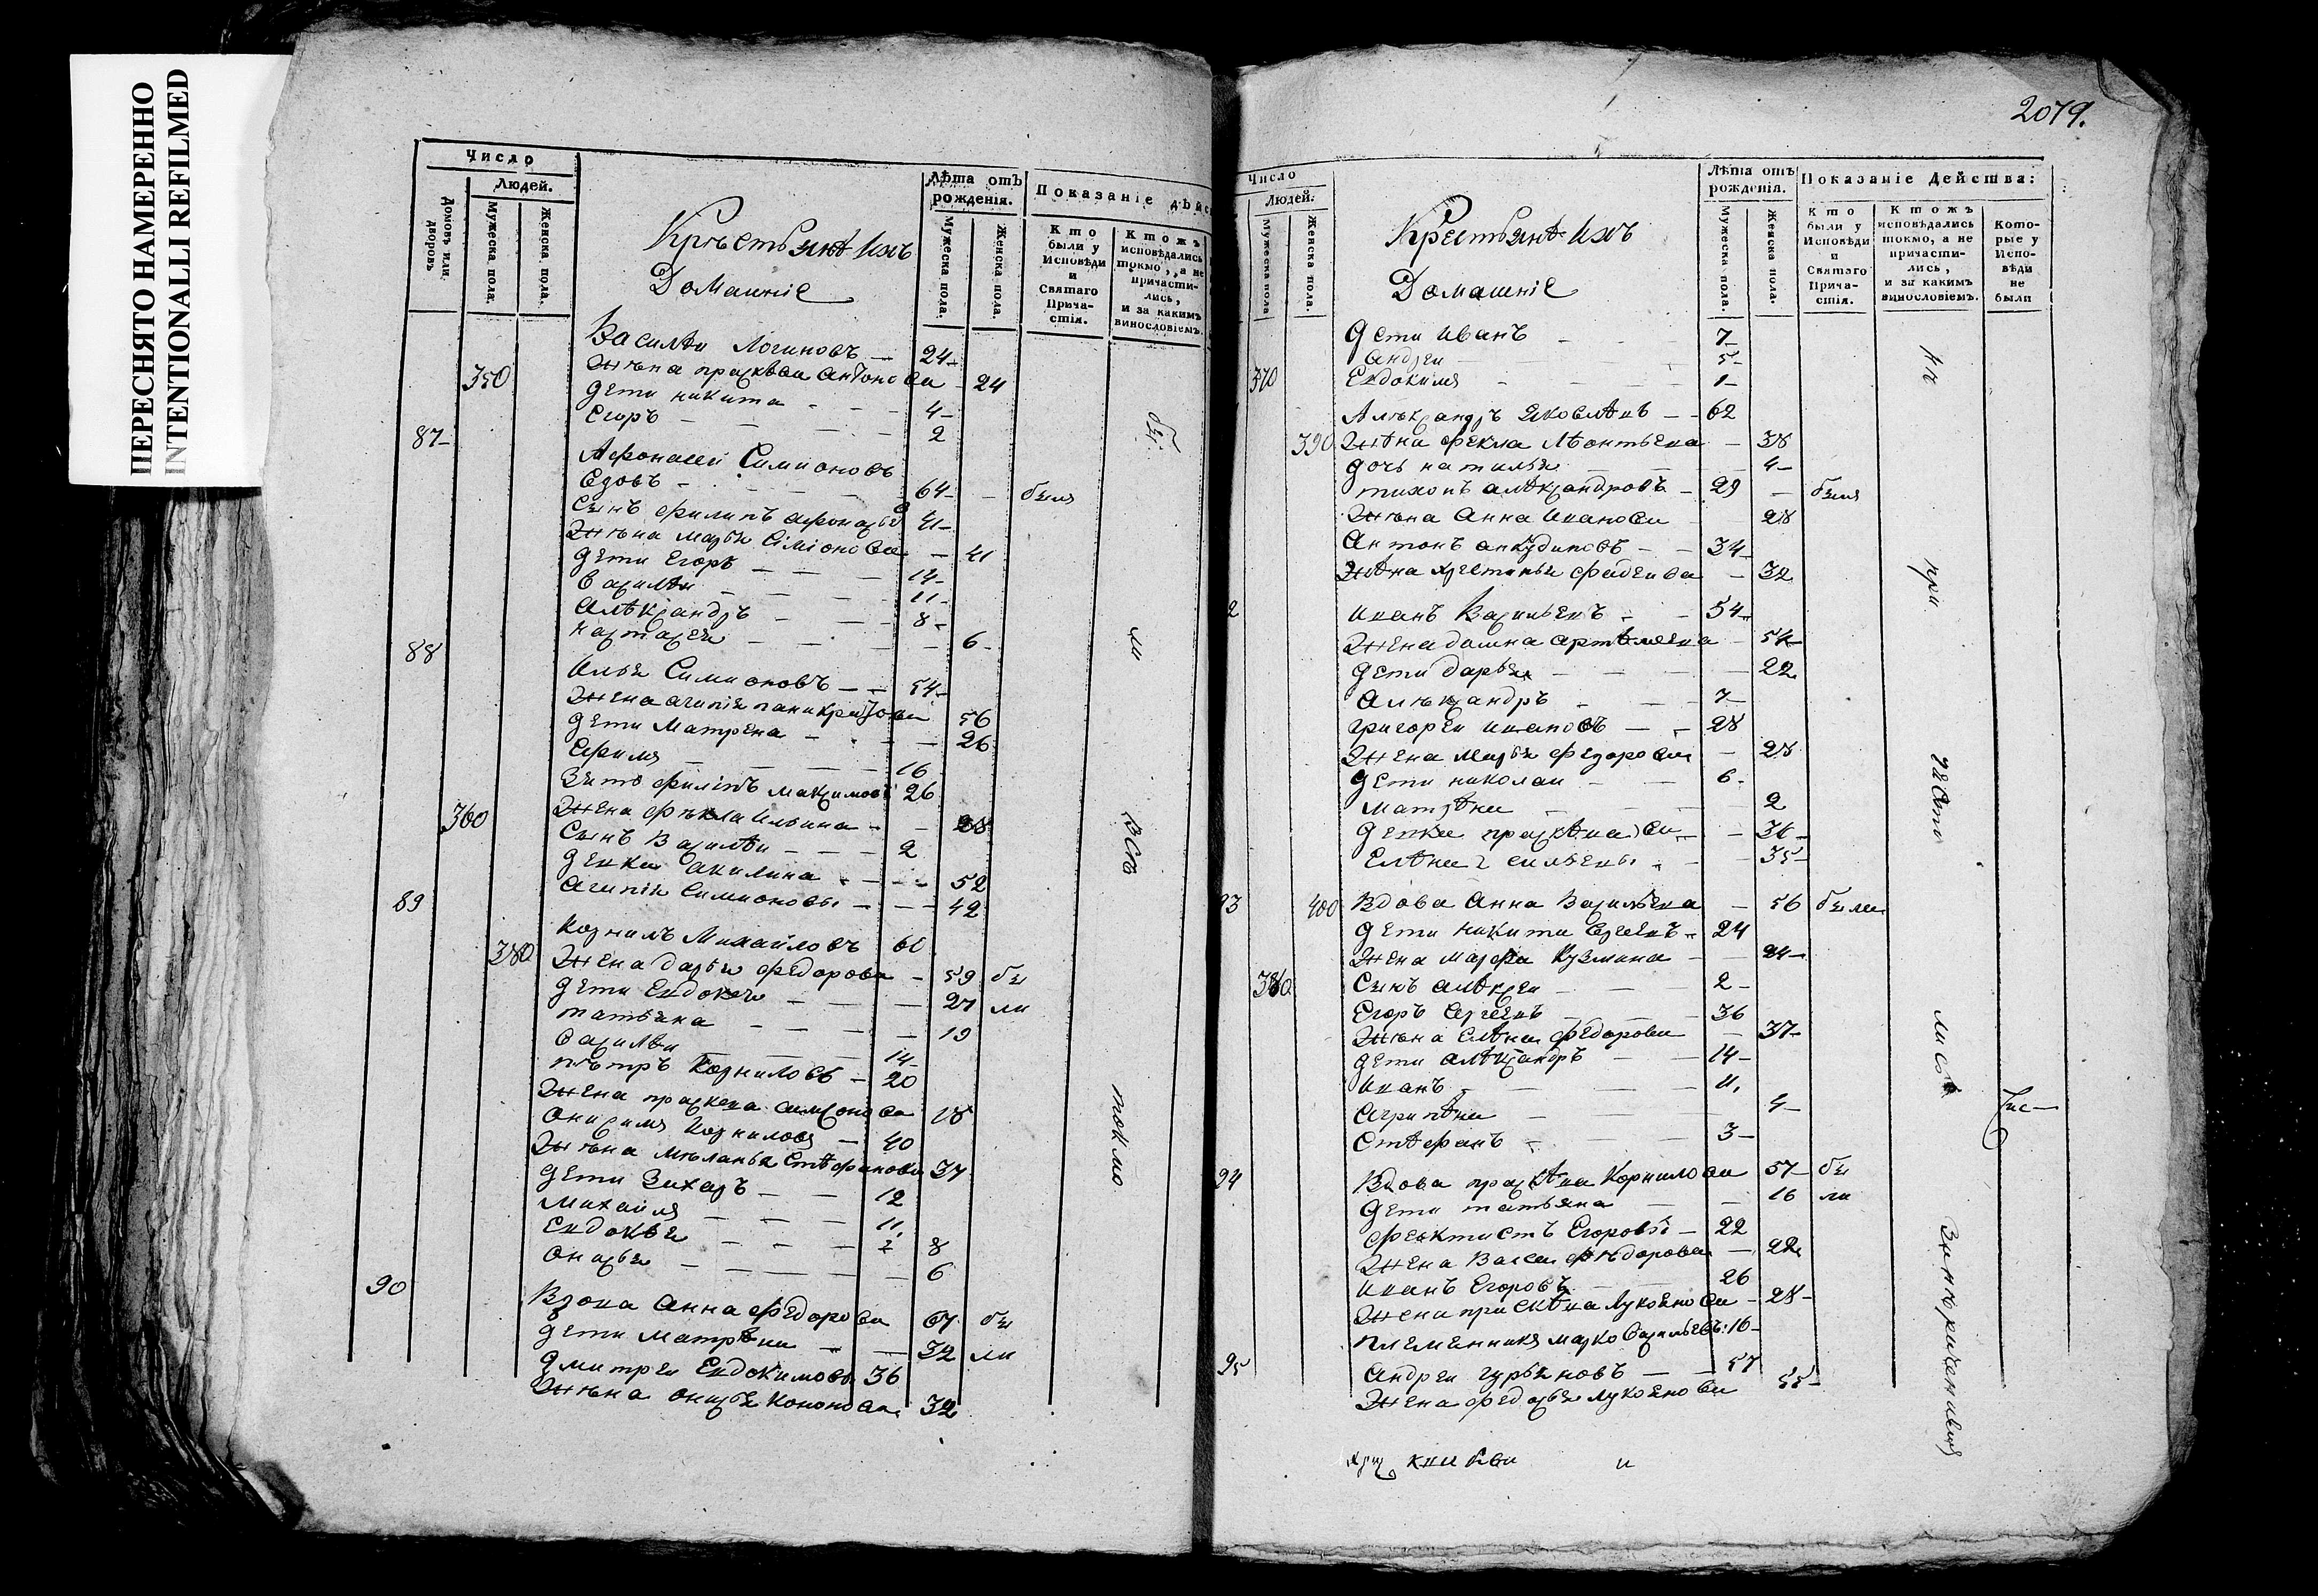 ПЕРЕСНЯТО НАМЕРЕННО
INTENTIONALLI REFILMED
Число
Людей.
Домовъ или дворовъ.
Мужеска пола.
Женска пола.
Крѣстьянѣ ихъ
Домашніе
Лѣта отъ рожденія.
Мужеска пола.
Женска пола.
Показаніе дѣйс
Кто были у Исповѣди и Святаго Прича-стія.
Ктожъ исповѣдались токмо, а не причасти-лись, и за какимъ винословіемъ.
Василѣи Логиновъ — 24
350 Жѣна прасквеи антонова 24
Дети никита - - - 4
Егоръ - - - 2
87 Афонасеи Симионовъ
Сынъ филипъ афонасье 41
Жѣна марья Сiмiонова — 41
Дети Егоръ — — — 14
василѣи — — — 11
алѣксандръ — — — 8
настасея — — — 6
88 Илья Симионовъ — — 54
Жена агипiя паникратова 56
Дети Матрена - - - 26
Ефимъ — — — 16
Зять филипъ максимовъ 26
360 Жена фѣкла Ильина - - 28
Сынъ Василѣи - - - 2
Дѣвки акилина - - - 52
агипiя Симионовы — — 42
89 Корнилъ Михайловъ 60
380 Жена дарья федорова - 59 бы
Дети Евдокея — — — 27 ли
татьяна — — — 19
василѣи — — — 14
пѣтръ Корниловъ — 20
Жена праскева симионова 18
Онисимъ Корниловъ — 40
Жѣна мѣланья Стѣфанова 37
Дети Захаръ — — 12
Михайла — — — 11
Евдокѣя — — — 8
Онисья — — — — 6
90 Вдова Анна федорова 67 бы
Дети матрѣна - — 32 ли
Дмитреи Евдокимовъ 36
Жѣна онисья кононова 32
были
бы
ли
всѣ
токмо
2079.
Число
Людей.
Мужеска пола
Женска пола.
Крестьянѣ ихъ
Домашніе
Лѣта отъ рожденія.
Мужеска пола.
Женска пола.
Показаніе Действа:
Кто были у Исповѣди и Святаго Прича-стія.
Ктожъ исповѣдались токмо, а не причасти-лись, и за какимъ винословіемъ.
Кото-рые у Испо-вѣди не были
Дети иванъ - - - 7
андреи 5
370 Евдокимъ - - - 1
Алѣксандръ Яковлѣвъ — 62
390 Жѣна фекла Лѣонтьева — 38
Дочь наталья 4
тихонъ алѣксандровъ - 29 — были
Жѣна Анна Иванова 28
Антонъ анкудиновъ - - 34
Жѣна хрестинья фадеева — 32
2 иванъ Васильевъ - - 54
Жена домна артѣмаева - 54
Дети дарья - - - 22
Алѣксандръ - - - 7
григореи ивановъ — - 28
Жена марья федорова — 28
Дети николаи - - 6
матрѣна 2
Девки прасковья - 36
Елѣна 35
93 400 Вдова Анна Васильева — 56 были
Дети никита Сергеевъ - 24
Жена марфа Кузмина - - 24
380 Сынъ алѣксеи - - - 2
Егоръ Сергеевъ - - 36
Жѣна Елѣна федорова — 37
Дети алѣксандръ - - 14
иванъ - - - 11
агрипѣна - - - 4
Стѣфанъ - - - 3
94 Вдова прасковья Корнилова 57 бы
Дети татьяна - - 16 ли
феоктистъ Егоровъ - 22
Жена Васса фѣдорова — 22
иванъ Егоровъ - - 26
Жена прасковья Лукоянова - 28
плѣменникъ марко васильевъ 16
95 Андреи гурьяновъ — — 57
Жена федосья лукоянова 55
не
при
части
лись